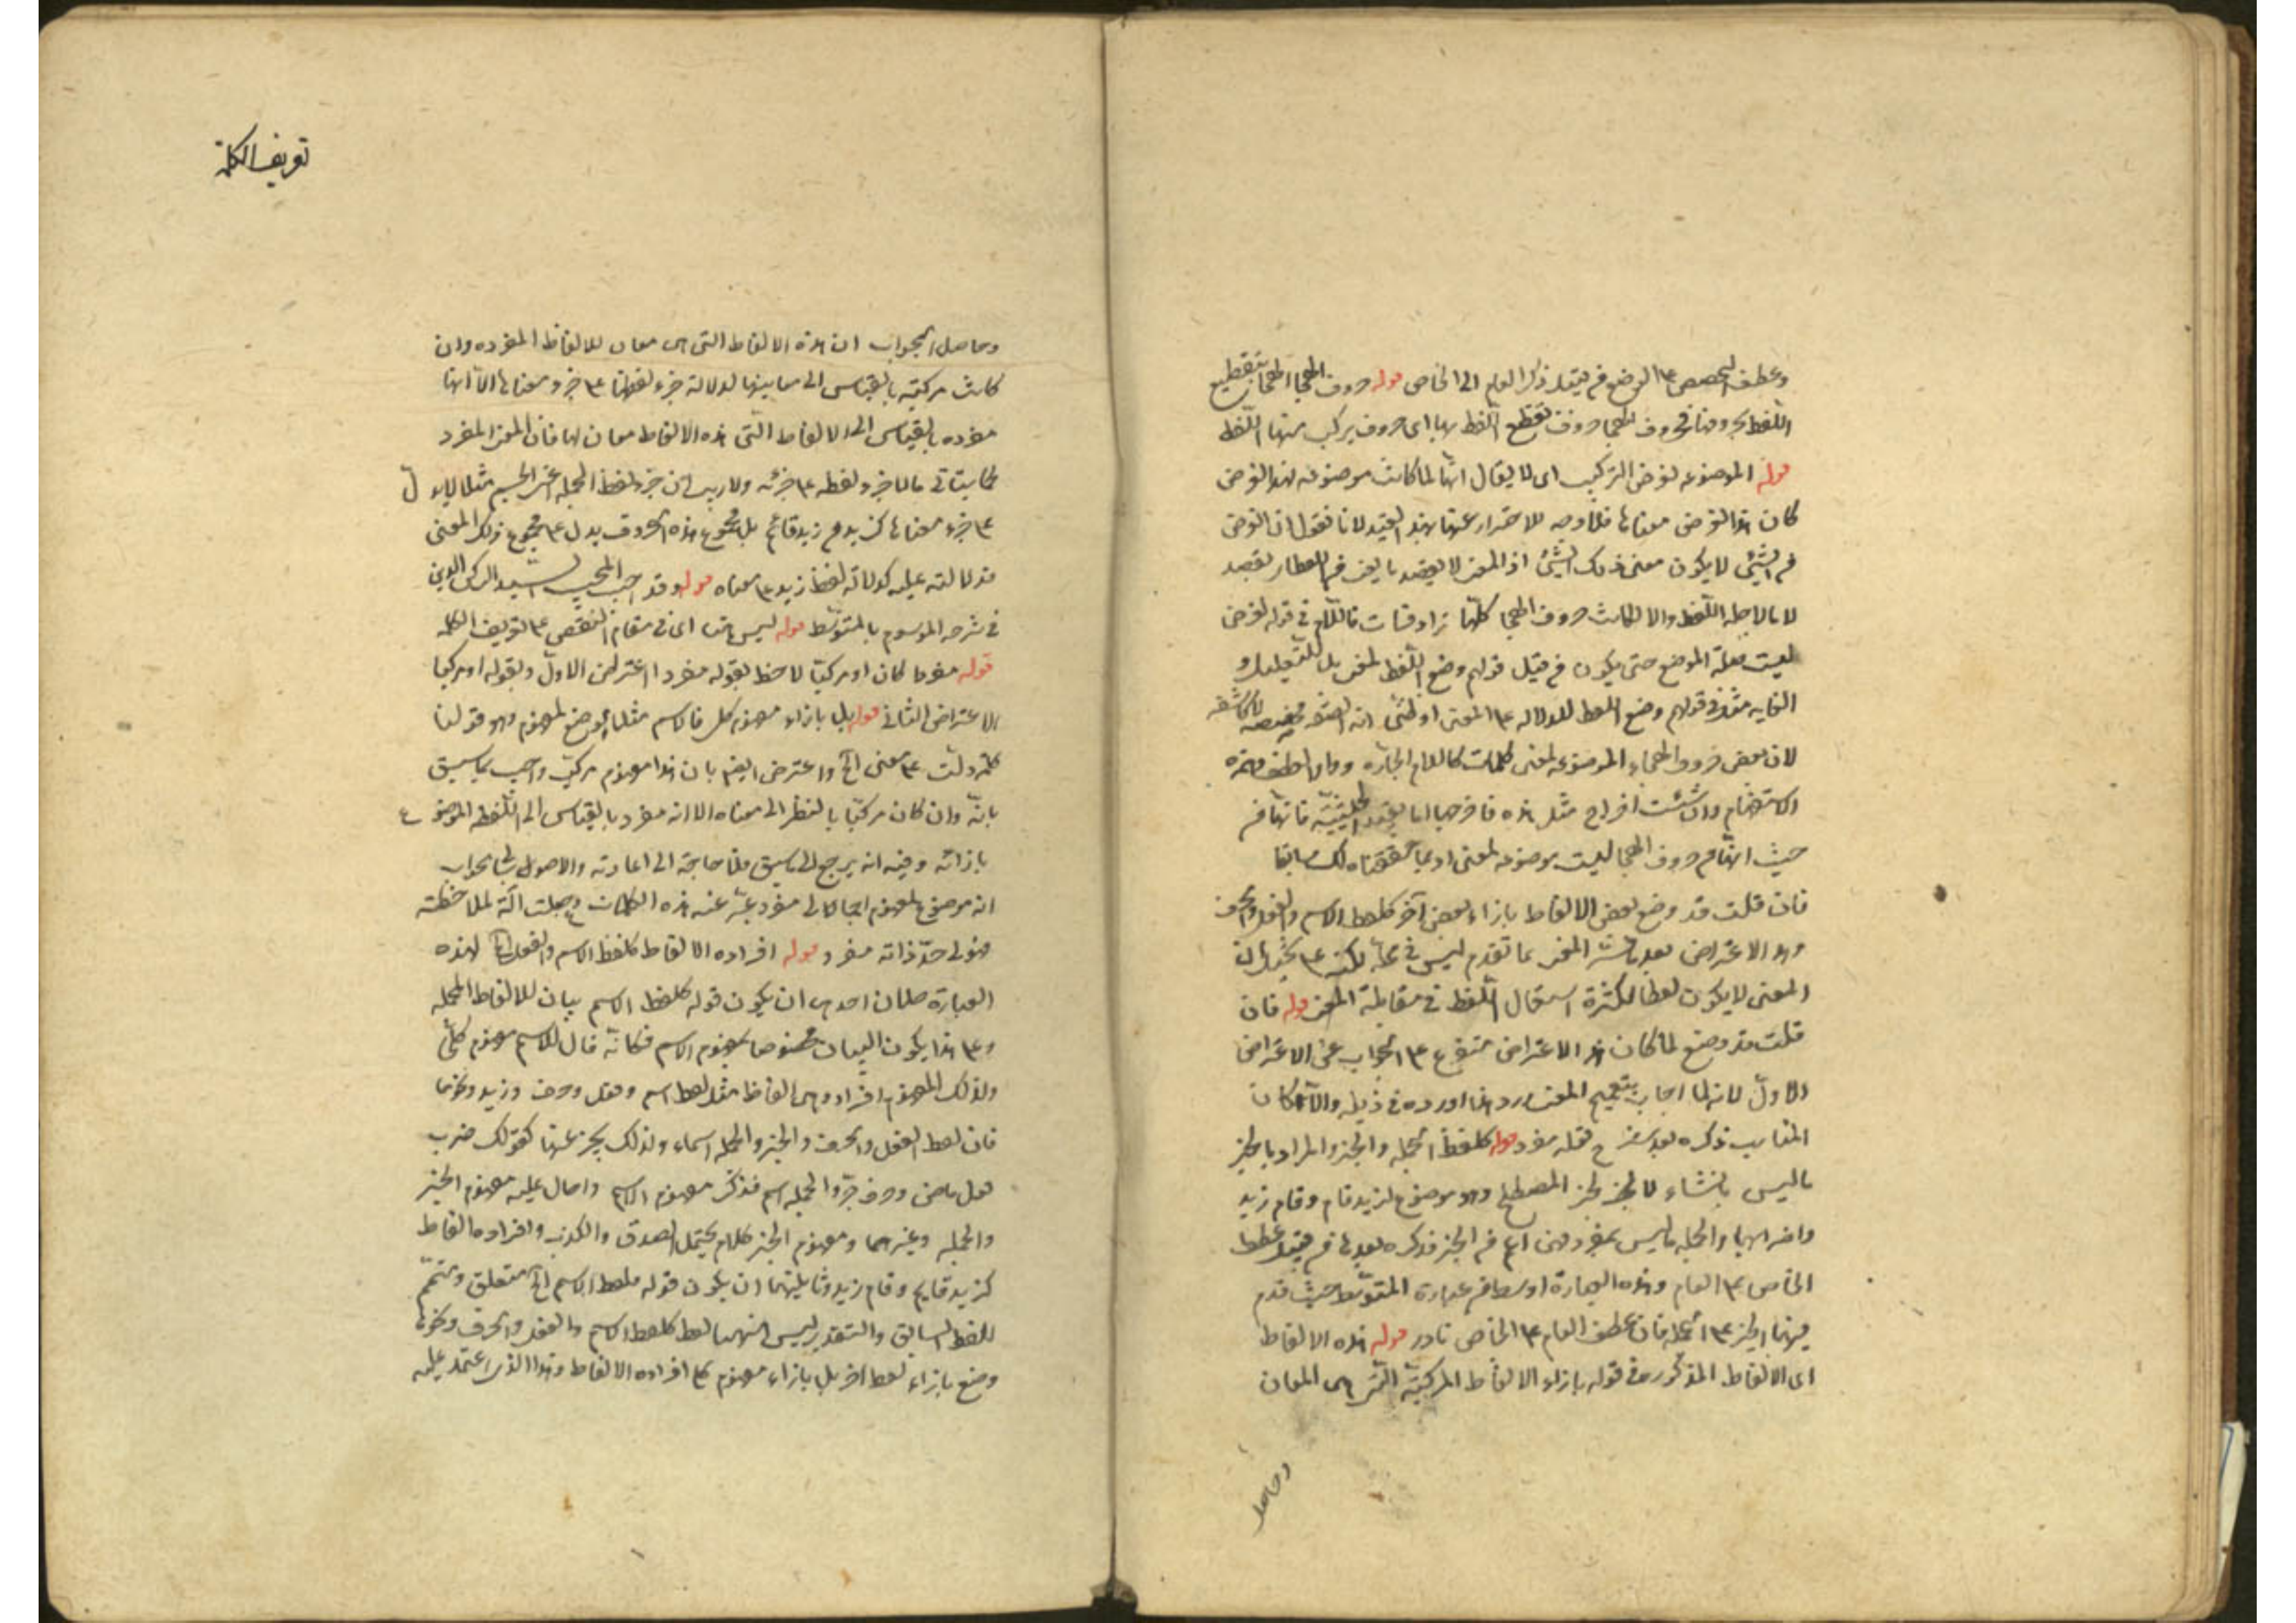 وعطف التخصيص على الوضع من قبيل ذكر العام الى الخاص قوله حروف الهجا الهجا تقطيع
اللفظ بحروفها فحروف الهجا حروف تقطع اللفظ بها اى حروف يركب منها اللفظ
قوله الموضوعه لغرض التركيب اى لا يقال انها لما كانت موضوعه لهذا الغرض
كان هذا الغرض معناها فلا وجه للاحتراز عنها بهذا القيد لانا نقول ان الغرض
من الشئ لا يكون معنى ذلك الشئ اذ المعنى لا يقصد باللفظ
لا ما لاجله اللفظ والا لكانت حروف الهجا كلها مرادفات فاللام فى قوله لغرض
ليست صلة الوضع حتى يكون من قبيل قولهم وضع اللفظ لمعنى بل للتعليل و
الغايه مثله فى قولهم وضع اللفظ للدلاله على المعنى
لان بعض حروف الهجاء الموضوعه لمعنى كلمات كاللام الجارة وواو العطف وهمزه
الاستفهام وان شئت اخراج مثل هذه فاخرجها بقيد الحيثية فانها من
حيث انها من حروف الهجا ليست موضوعه لمعنى حققناه لك سابقا
فان قلت قد وضع بعض الالفاظ بازاء بعض آخر كلفظ الاسم والفعل والحرف
وهذا الاعتراض بعد المعنى بما تقدم ليس فى محله لكنه على
المعنى لا يكون لفظا لكثرة استعمال اللفظ فى مقابلة المعنى قوله فان
قلت قد وضع لما كان هذا الاعتراض متفرع على الجواب عن الاعتراض
الاول لانه لما اجاب بتعميم المعنى ورد هذا اورده فى ذيله والا لكان
المناسب ذكره بعد شرح قوله مفرد قوله كلفظ الجمله والخبر والمراد بالخبر
ما ليس بانشاء لا الخبر المصطلح وهو موضوع لزيد قام وقام زيد
وامثالهما والجمله ما ليس بمفرد فهى اعم من الخبر فذكره بعدها من قبيل عطف
الخاص على العام وهذه العبارة اوسط من عبارة المتوسط حيث قدم
فيها الخبر على الجمله فان عطف العام على الخاص نادر قوله هذه الالفاظ
اى الالفاظ المذكوره فى قوله بازاء الالفاظ المركبة التى هى المعان
وحاصل
تعريف الكلمة
وحاصل الجواب ان هذه الالفاظ التى هى معان للالفاظ المفرده وان
كانت مركبة بالقياس الى معانيها لدلالة جزء لفظها على جزء معناها الا انها
مفرده بالقياس الى الالفاظ التى هذه الالفاظ معان لها فان المعنى المفرد
كما سيتأتى ما لا جزء لفظه على جزئه ولا ريب ان جزء لفظ الجمله اعنى الجيم مثلا لا يدل
على جزء معناها كزيد من زيد قائم بل مجموع هذه الحروف يدل على مجموع ذلك المعنى
فدلالته عليه كدلالة لفظ زيد على معناه قوله وقد اجيب المجيب السيد الركن الدين
فى شرحه الموسوم بالمتوسط قوله ليس هنا اى فى مقام النقض على تعريف الكلمه
قوله مفردا كان او مركبا لاحظ بقوله مفردا الاعتراض الاول وبقوله او مركبا
الاعتراض الثانى قوله بل بازاء مفهوم كلى فالاسم مثلا موضوع لمفهوم وهو قولنا
كلمة دلت على معنى الخ واعترض ايضا بان هذا مفهوم مركب واجيب بما سبق
بانه وان كان مركبا بالنظر الى معناه الا انه مفرد بالقياس الى اللفظ الموضوع
بازائه وفيه انه يرجع الى ما سبق فلا حاجة الى اعادته والاصوب فى الجواب
انه موضوع لمفهوم اجمالى مفرد عبر عنه بهذه الكلمات وجعلت آلة لملاحظته
فهو فى حد ذاته مفرد قوله افراده الالفاظ كلفظ الاسم والفعل الخ لهذه
العبارة محملان احدهما ان يكون قوله كلفظ الاسم بيان للالفاظ المجمله
وعلى هذا يكون البيان مخصوصا بمفهوم الاسم فكانه قال للاسم مفهوم كلى
ولذلك المفهوم افراد وهى الفاظ مثل لفظ اسم وفعل وحرف وزيد ونحوها
فان لفظ الفعل والحرف والخبر والجمله اسماء ولذلك يخبر عنها كقولك ضرب
فعل ماض وحرف جر والجمله اسم فذكر مفهوم الاسم واحال عليه مفهوم الخبر
والجمله وغيرهما ومفهوم الخبر كلام يحتمل الصدق والكذب وافراده الفاظ
كزيد قايم وقام زيد وثانيهما ان يكون قوله كلفظ الاسم الخ متعلق ومتمم
للفظ السابق والتقدير ليس ههنا لفظ كلفظ الاسم والفعل والحرف ونحوها
وضع بازاء لفظ اخر بل بازاء مفهوم كلى افراده الالفاظ وهذا الذى اعتمد عليه